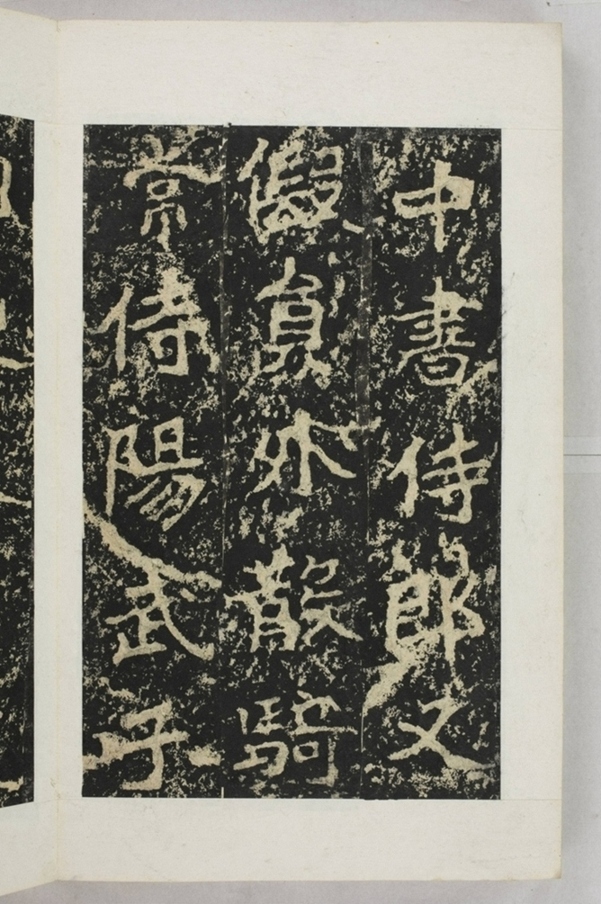 中書侍郎又
假貟外散騎
常侍陽武子